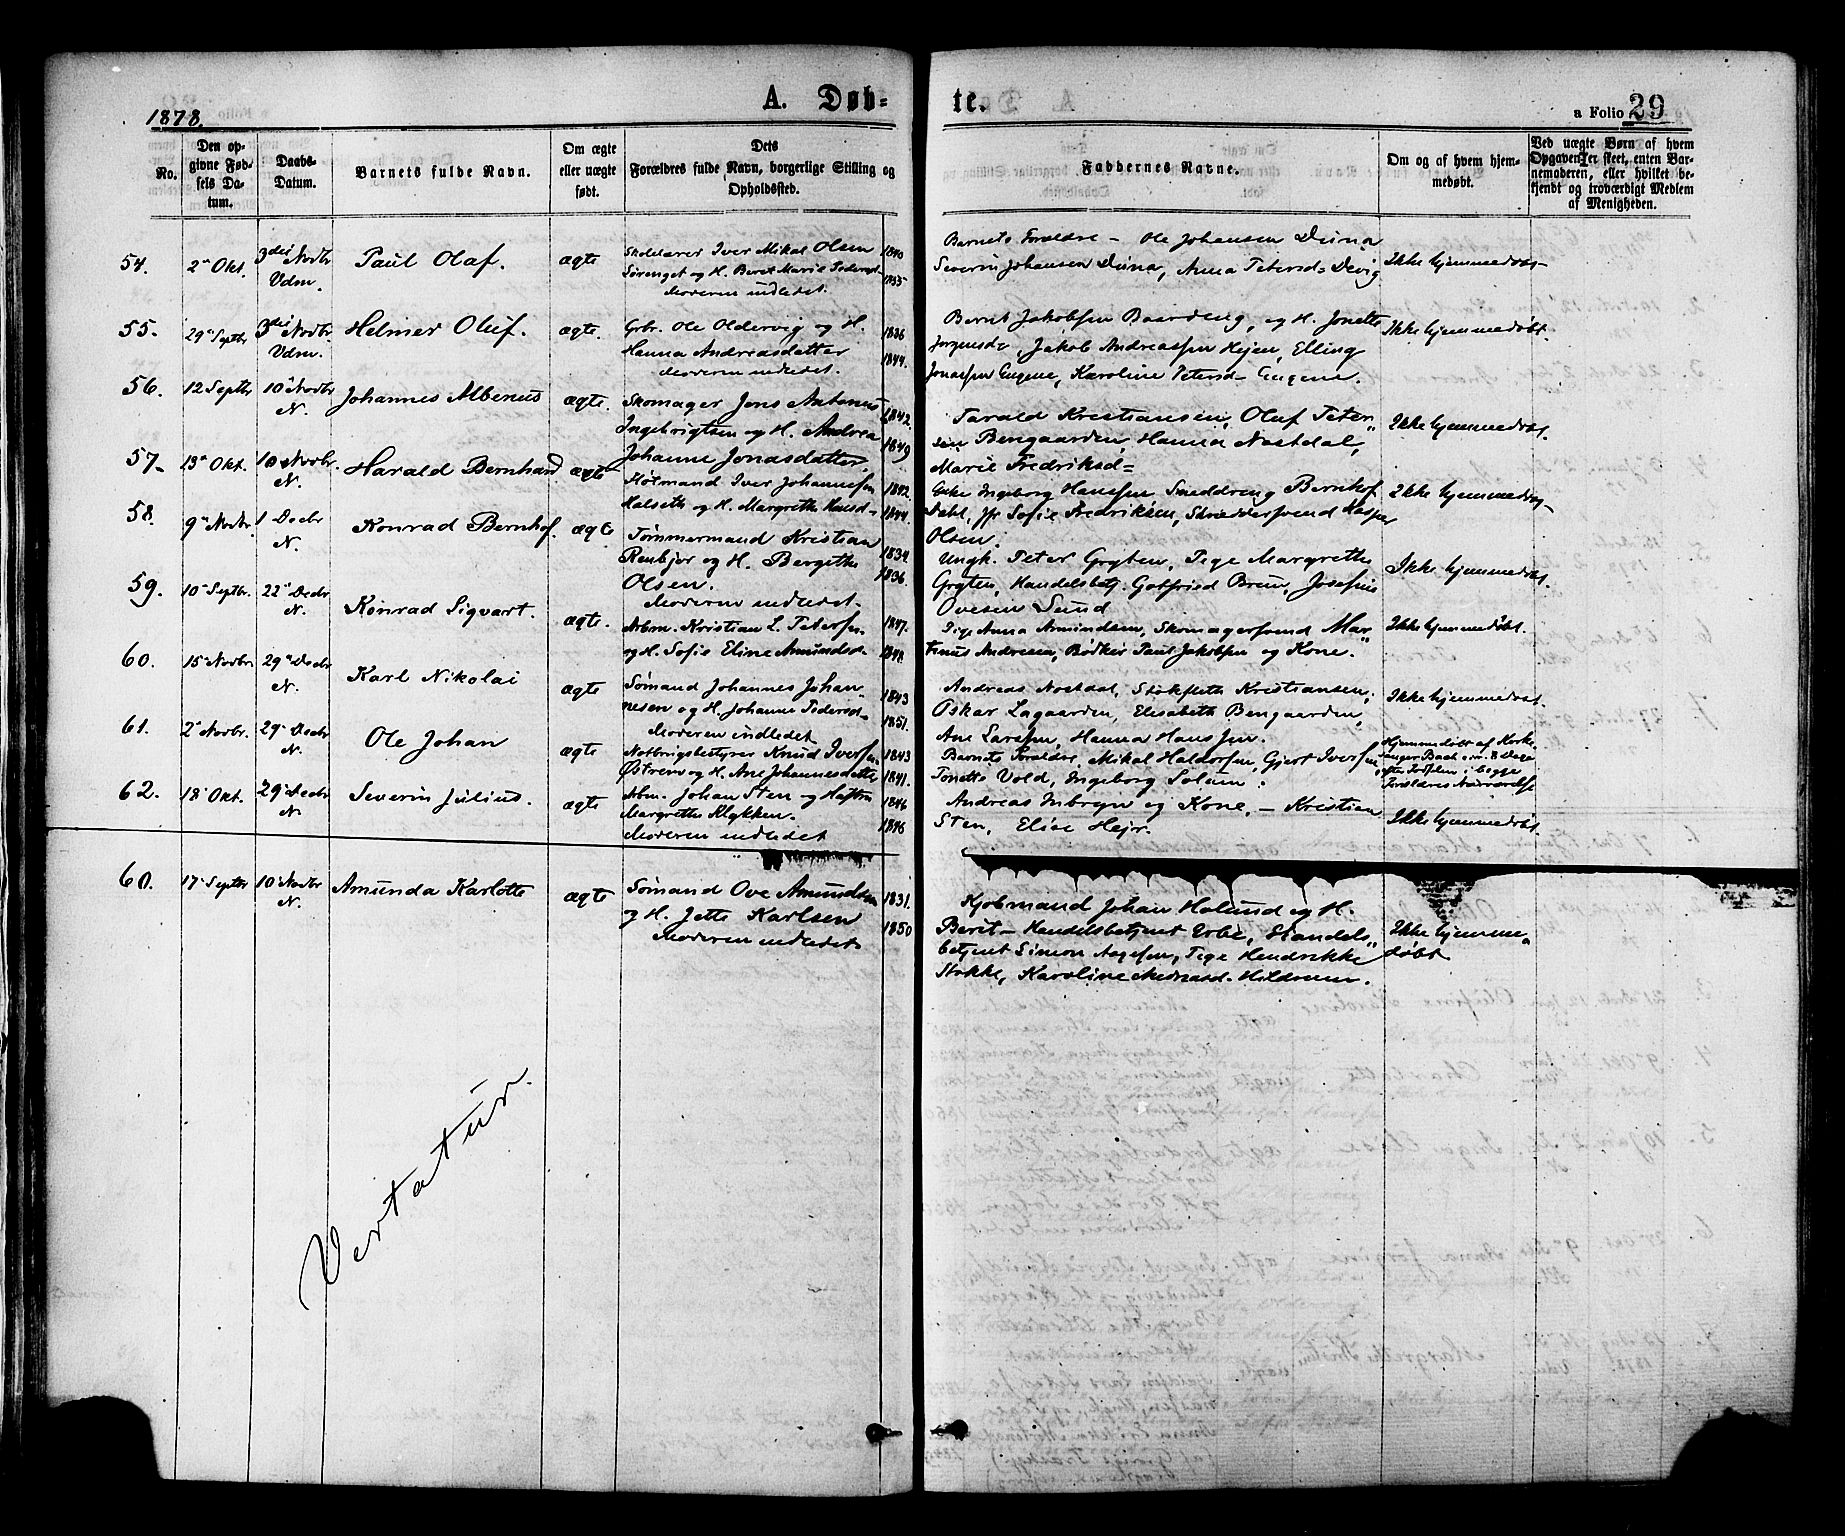 1878.
A. Døb-
te.
a Folio 29
No.
Den op-
givne Fød-
sels Da-
tum.
Daabs-
Datum.
Barnets fulde Navn.
Om ægte
eller uægte
født.
Dets
Forældres fulde Navn, borgerlige Stilling og
Opholdssted.
Faddernes Navne.
Om og af hvem hjem-
medøbt.
Ved uægte Børn af hvem
Opgaven er skeet, enten Bar-
nemoderen, eller hvilket be-
kjendt og troværdigt Medlem
af Menigheden.
54.
2' Okt.
3die Novbr
Vdm.
Paul Olaf.
ægte
Skolelærer Iver Mikal Olsen 1840
og H. Beret Marie Pedersd. 1855
Moderen indledet.
Barnets Forældre – Ole Johansen Duna
Severin Johansen Duna, Anna Petersd= Devig
Ikke hjemmedøbt
55.
29' Septbr
3die Novbr.
Vdm.
Helmer Oluf.
ægte.
Gbr. Ole Oldervig og H. 1836
Hanna Andreasdatter 1844.
Moderen indledet.
Bernt Jakobsen Baardeng, og H. Jonette
Jørgensd., Jakob Andreassen Hejen, Elling
Jonassen Eugene, Karoline Petersd– Eugene.
Ikke hjemmedøbt.
56.
12 Septbr
10' Novbr
N.
Johannes Albenus
ægte.
Skomager Jens Antonus 1842.
Ingebrigtsen og H. Andrea 1849
Johanne Jonasdatter.
Tarald Kristiansen, Oluf Peter„
sen Bengaarden, Hanna Nostdal,
Marie Fredriksd=
Ikke hjemmedøbt.
57.
13' Okt.
10 Novbr.
N.
Harald Bernhard
ægte
Iver Johannesen 1842.
Halseth og H. Margrethe Hansd– 1844.
Enke Ingeborg Hanssen, Smeddreng Bernhof
Dahl, Jfr Sofie Fredriksen, Skræddersvend Kasper
Olsen.
Ikke hjemmedøbt
58.
9' Novbr.
1 Decbr
N.
Konrad Bernhof.
ægte
Tømmermand Kristian 1834.
Renbjør og H. Bergithe 1836.
Olsen.
Moderen indledet.
Ungk. Peter Gryten, Pige Margrethe
Gryten, Handelsbetj. Gotfried Brun, Josefine
Ovesen Lund
Ikke hjemmedøbt.
59.
10' Septbr.
22' Decbr
N.
Konrad Sigvart.
ægte.
Arbm. Kristian L. Petersen 1847.
og H. Sofie Eline Amundsd.
Pige Anna Amundsen, Skomagersvend Mar„
tinus Andresen, Bødker Paul Jakobsen og Kone.
Ikke hjemmedøbt.
60.
15' Novbr
29' Decbr
N.
Karl Nikolai
ægte
Sømand Johannes Johan„ 1843
nesen og H. Johanne Pedersd– 1851.
Moderen indledet
Andreas Nostdal, Stokfleth Kristiansen,
Oskar Lagaarden, Elisabeth Bengaarden,
Ane Larsen, Hanna Hanssen.
Ikke hjemmedøbt.
61.
2' Novbr.
29' Decbr
N.
Ole Johan
ægte
Notbrigsbestyrer Knud Iversen 1843
Østrem og H. Ane Johannesdatter 1841.
Barnets Forældre, Mikal Haldorsen, Gjert Iversen,
Tonette Vold, Ingeborg Solum.
Hjemmedøbt af Kirke„
sanger Bach e.m. 8 Dage
efter Fødselen i begge
Forældres Nærværelse
62.
18' Okt.
29' Decbr
N.
Severin Julius.
ægte
Arbm. Johan Sten og Hustru 1846
Margrethe Klykken. 1846
Moderen indledet
Andreas Inbryn og Kone, – Kristian
Sten, Elise Hejr.
Ikke hjemmedøbt.
60.
17' Septbr
10' Novbr
N.
Amunda Karlotte
ægte
Sømand Ove Amundsen 1831.
og H. Jette Karlsen 1850
Moderen indledet
Kjøbmand Johan Holund og H.
Berit – Handelsbetjent Erbe, Handels„
betjent Simon Aagesen, Pige Hendrikke
Stokke, Karoline Hildrum.
Ikke hjemme„
døbt
Vertatur.